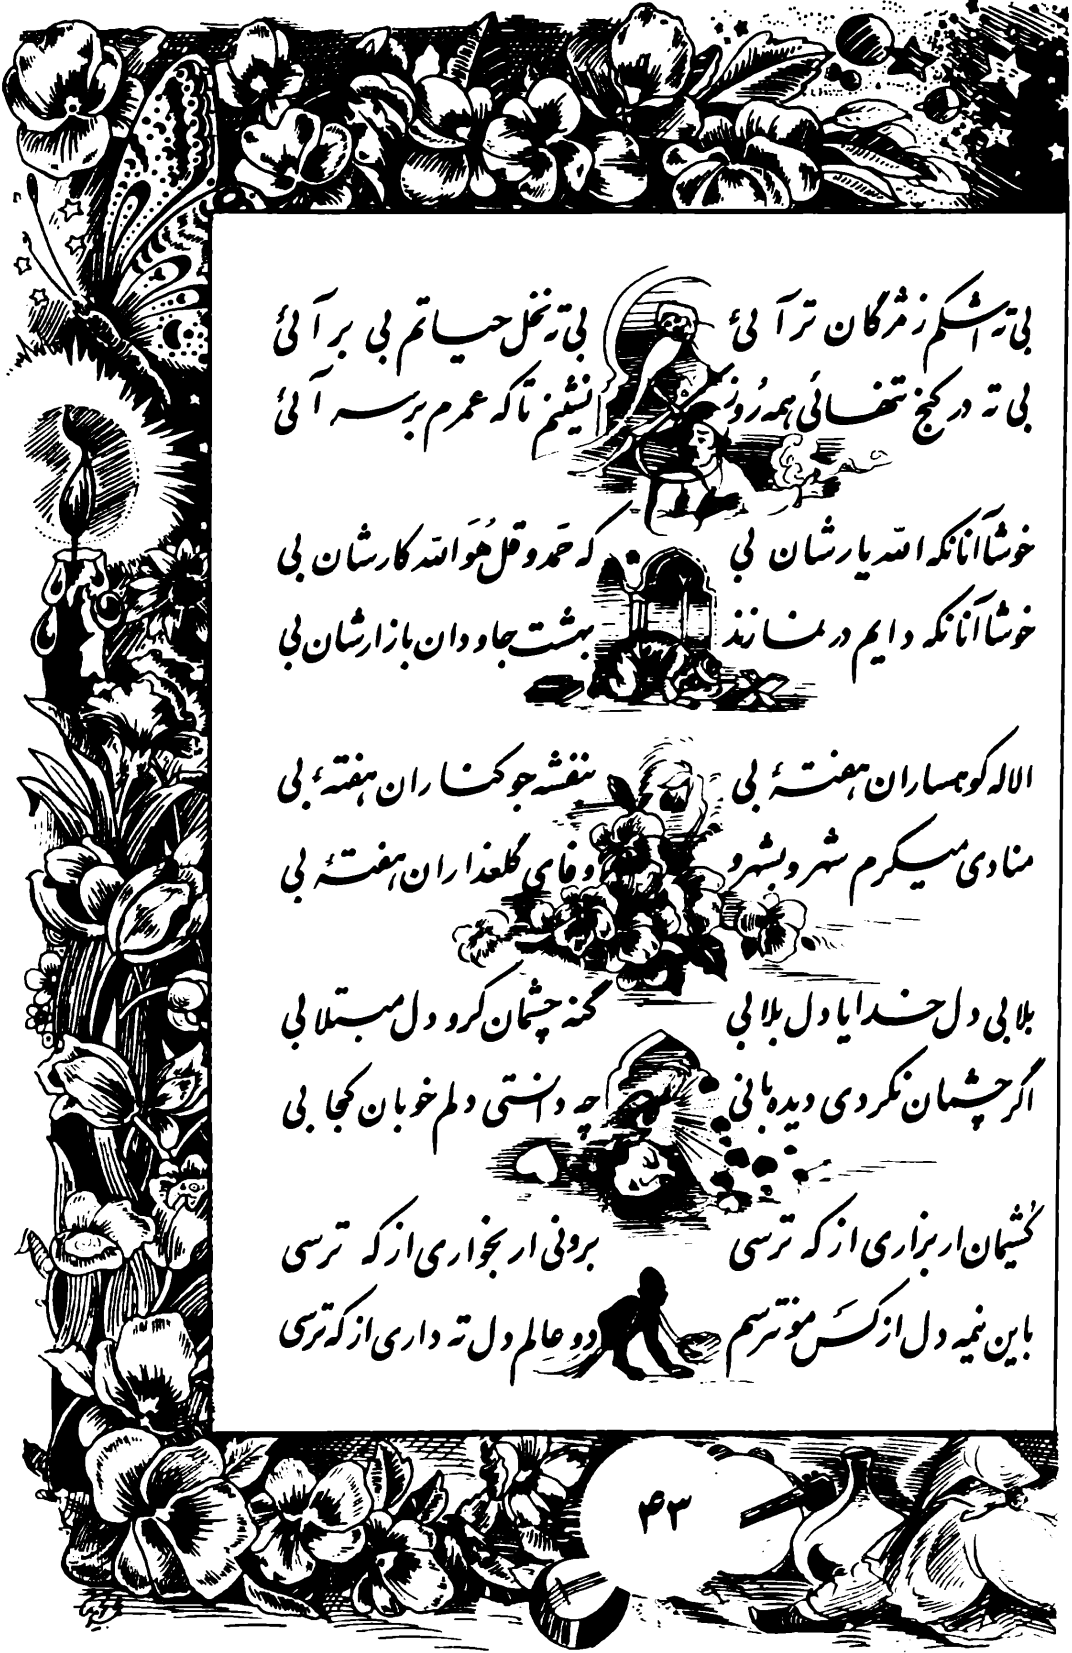 بی ته اشکم ز مژگان تر آئی بی ته نخل حیاتم بی بر آئی
بی ته در کنج تنهائی همه روز نشینم تا که عمرم بر سه آئی
خوشا آنانکه الله یارشان بی که حمد و قل هو الله کارشان بی
خوشا آنانکه دایم در نمازند بهشت جاودان بازارشان بی
الاله کوهساران هفتهٔ بی بنفشه جوکناران هفتهٔ بی
منادی میکرم شهر و بشهرو وفای گلعذاران هفتهٔ بی
بلا بی دل خدایا دل بلا بی گنه چشمان کرو دل مبتلا بی
اگر چشمان نکردی دیده بانی چه دانستی دلم خوبان کجا بی
کُشیمان ار بزاری از که ترسی برونی ار بخواری از که ترسی
باین نیمه دل از کَس مو نترسم دو عالم دل ته داری از که ترسی
۴۳